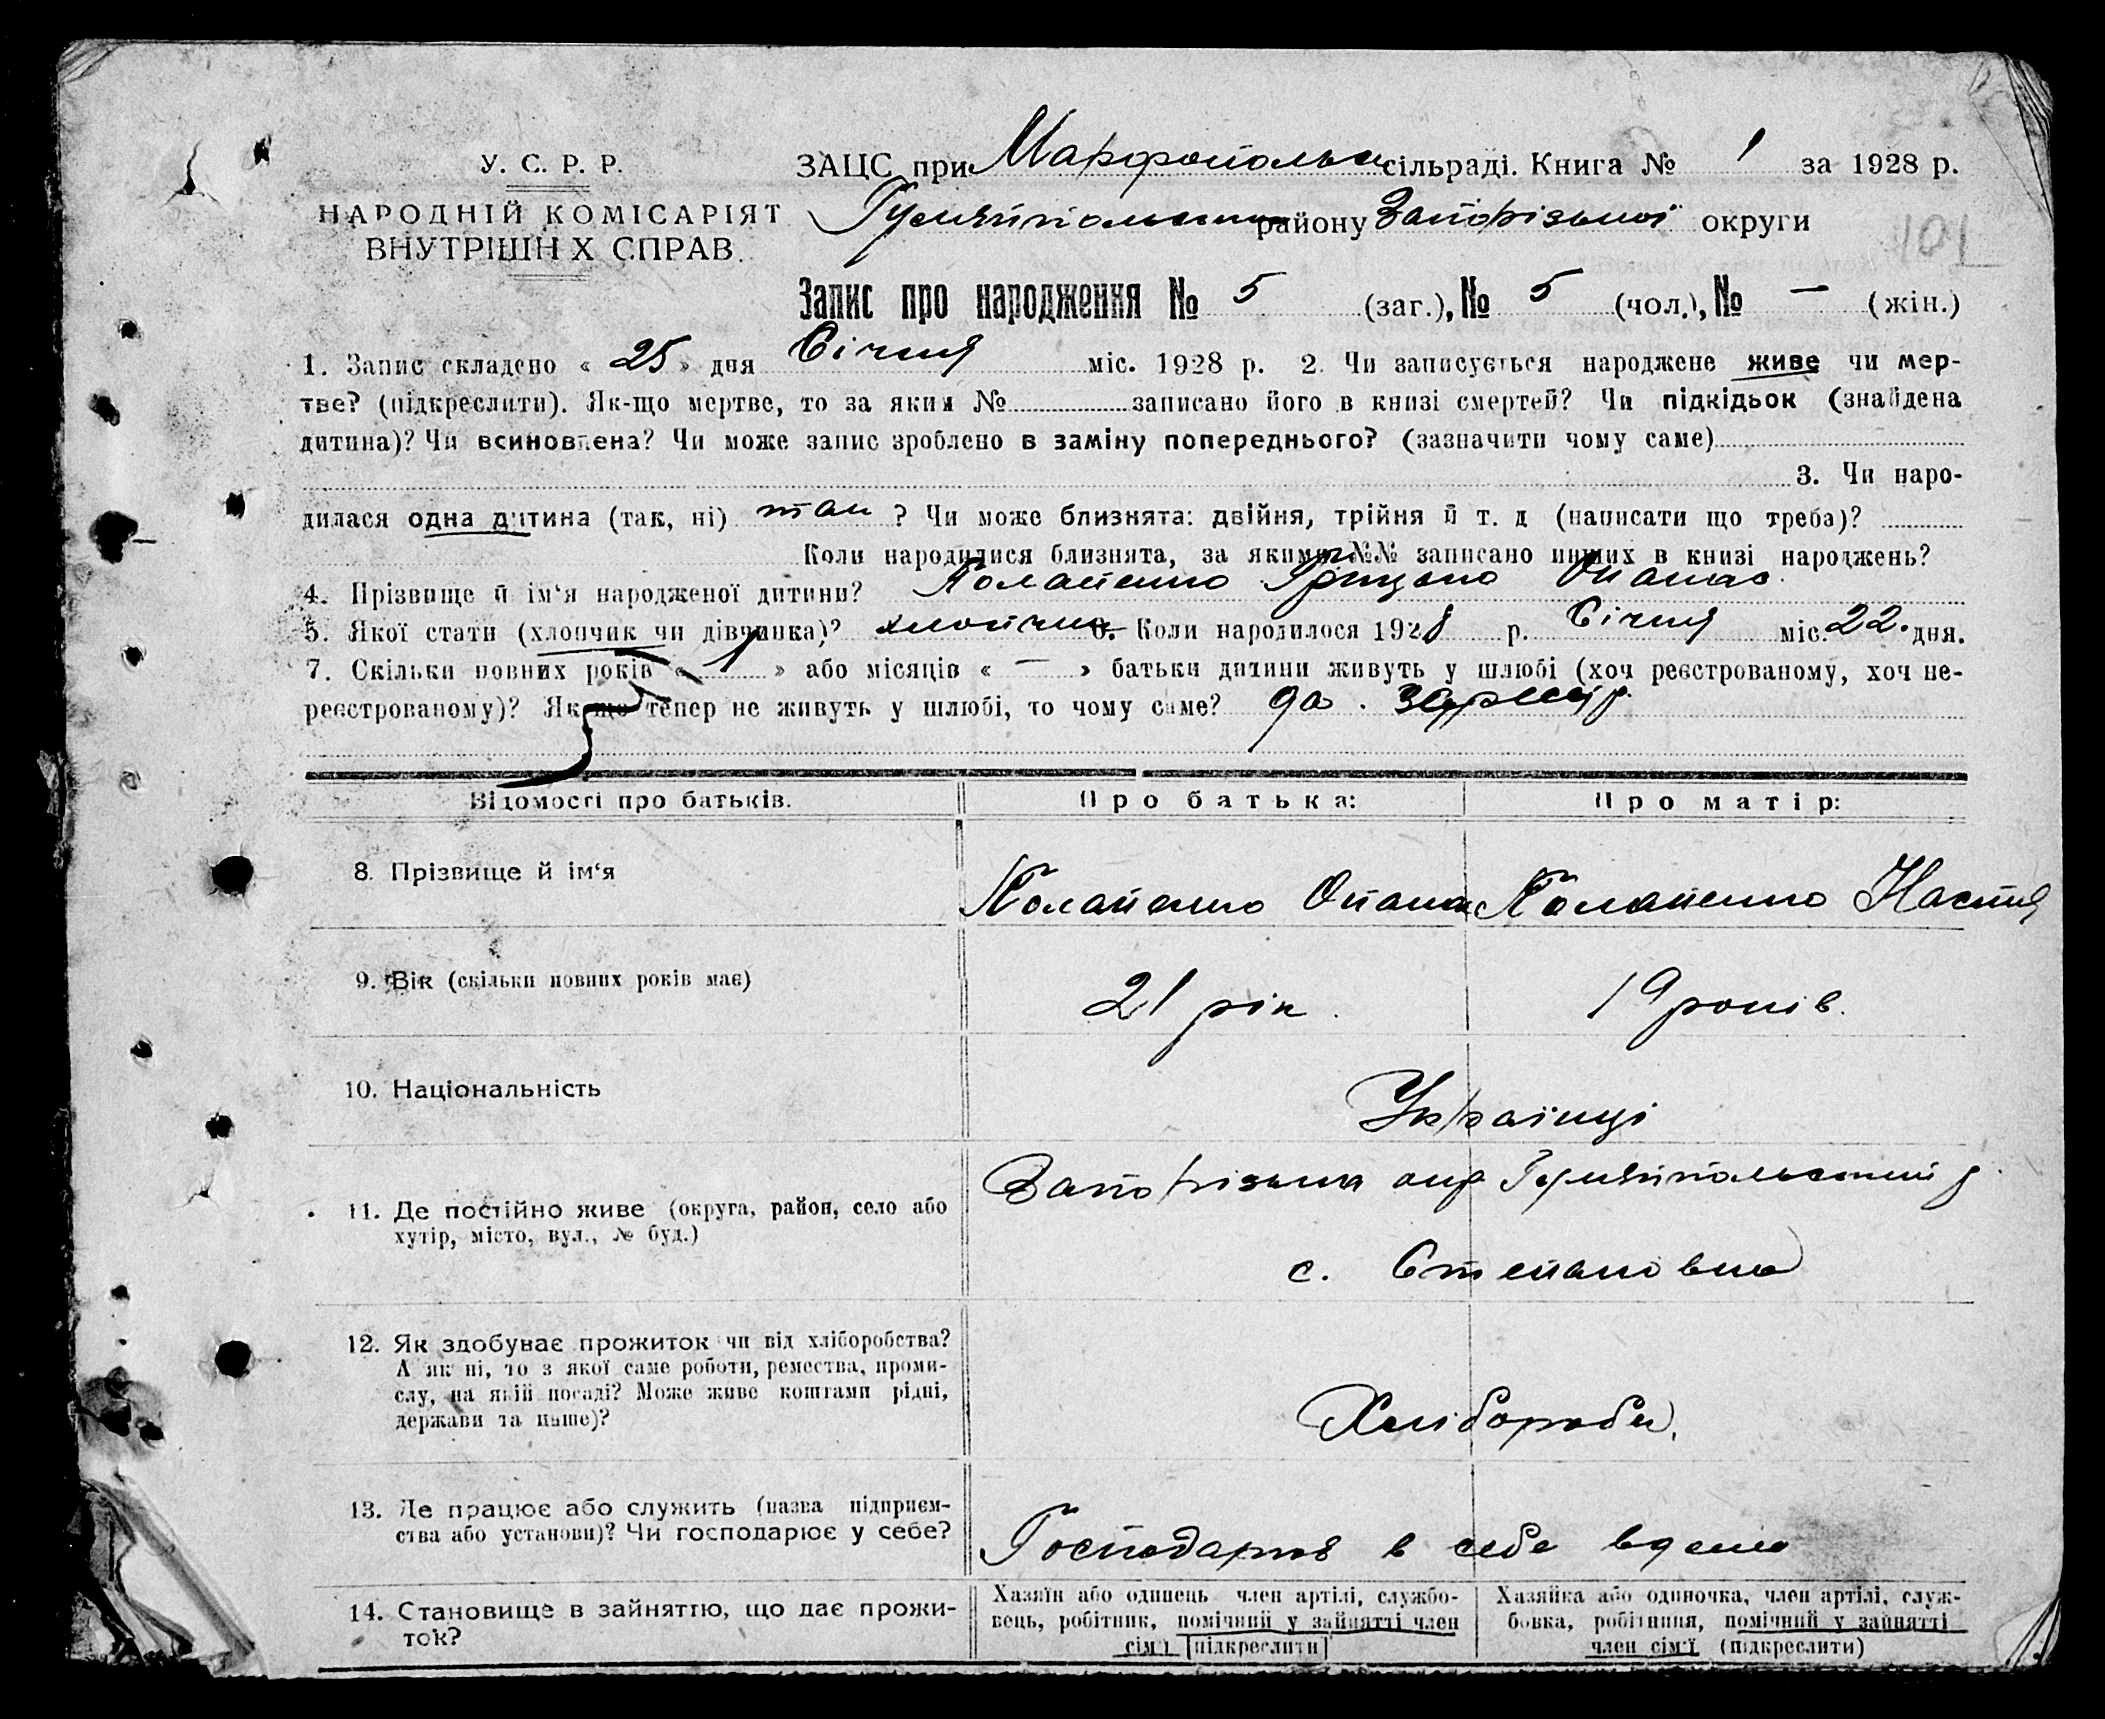 У. С. Р. Р.
НАРОДНІЙ КОМІСАРІЯТ
ВНУТРІШН Х СПРАВ.
ЗАЦС при Марфопольск сільраді. Книга № 1 за 1928 р.
Гуляйпольськ району Запорізької округи
101
Запис про народження № 5 (заг.), № 5 (чол.), № — (жін.)
1. Запис складено « 25 » дня Січня міс. 1928 р. 2. Чи записується народжене живе чи мер-
тве? (підкреслити). Як-що мертве, то за яким № записано його в книзі смертей? Чи підкідьок (знайдена
дитина)? Чи всиновлена? Чи може запис зроблено в заміну попереднього? (зазначити чому саме)
3. Чи наро-
дилася одна дитина (так, ні) так ? Чи може близнята: двійня, трійня й т. д (написати що треба)?
Коли народилися близнята, за якими №№ записано инших в книзі народжень?
4. Прізвище й ім‘я народженої дитини? Грицько Опанас.
5. Якої стати (хлопчик чи дівчинка)? хлопчик 6. Коли народилося 1928 р. Січня міс. 22. дня.
7. Скільки повних років « 1 » або місяців « — » батьки дитини живуть у шлюбі (хоч реєстрованому, хоч не-
реєстрованому)? Як-що тепер не живуть у шлюбі, то чому саме? да.
Відомості про батьків.
Про батька:
Про матір:
8. Прізвище й ім‘я
Опанас
Настя
9. Вік (скільки повних років має)
21 рік.
19 років.
10. Національність
Українці
11. Де постійно живе (округа, район, село або
хутір, місто, вул., № буд.)
Запорізька окр Гуляйпольський р.
с. Степановка
12. Як здобуває прожиток чи від хліборобства?
А як ні, то з якої саме роботи, ремества, проми-
слу, на якій посаді? Може живе коштами рідні,
держави та инше)?
Хлібороби.
13. Де працює або служить (назва підприєм-
ства або установи)? Чи господарює у себе?
Господарюв в себе вдома
14. Становище в зайняттю, що дає прожи-
ток?
Хазяїн або одинець член артілі, службо-
вець, робітник, помічний у зайнятті член
сім‘ї [підкреслити]
Хазяйка або одиночка, член артілі, служ-
бовка, робітниця, помічний у зайнятті
член сім‘ї (підкреслити)